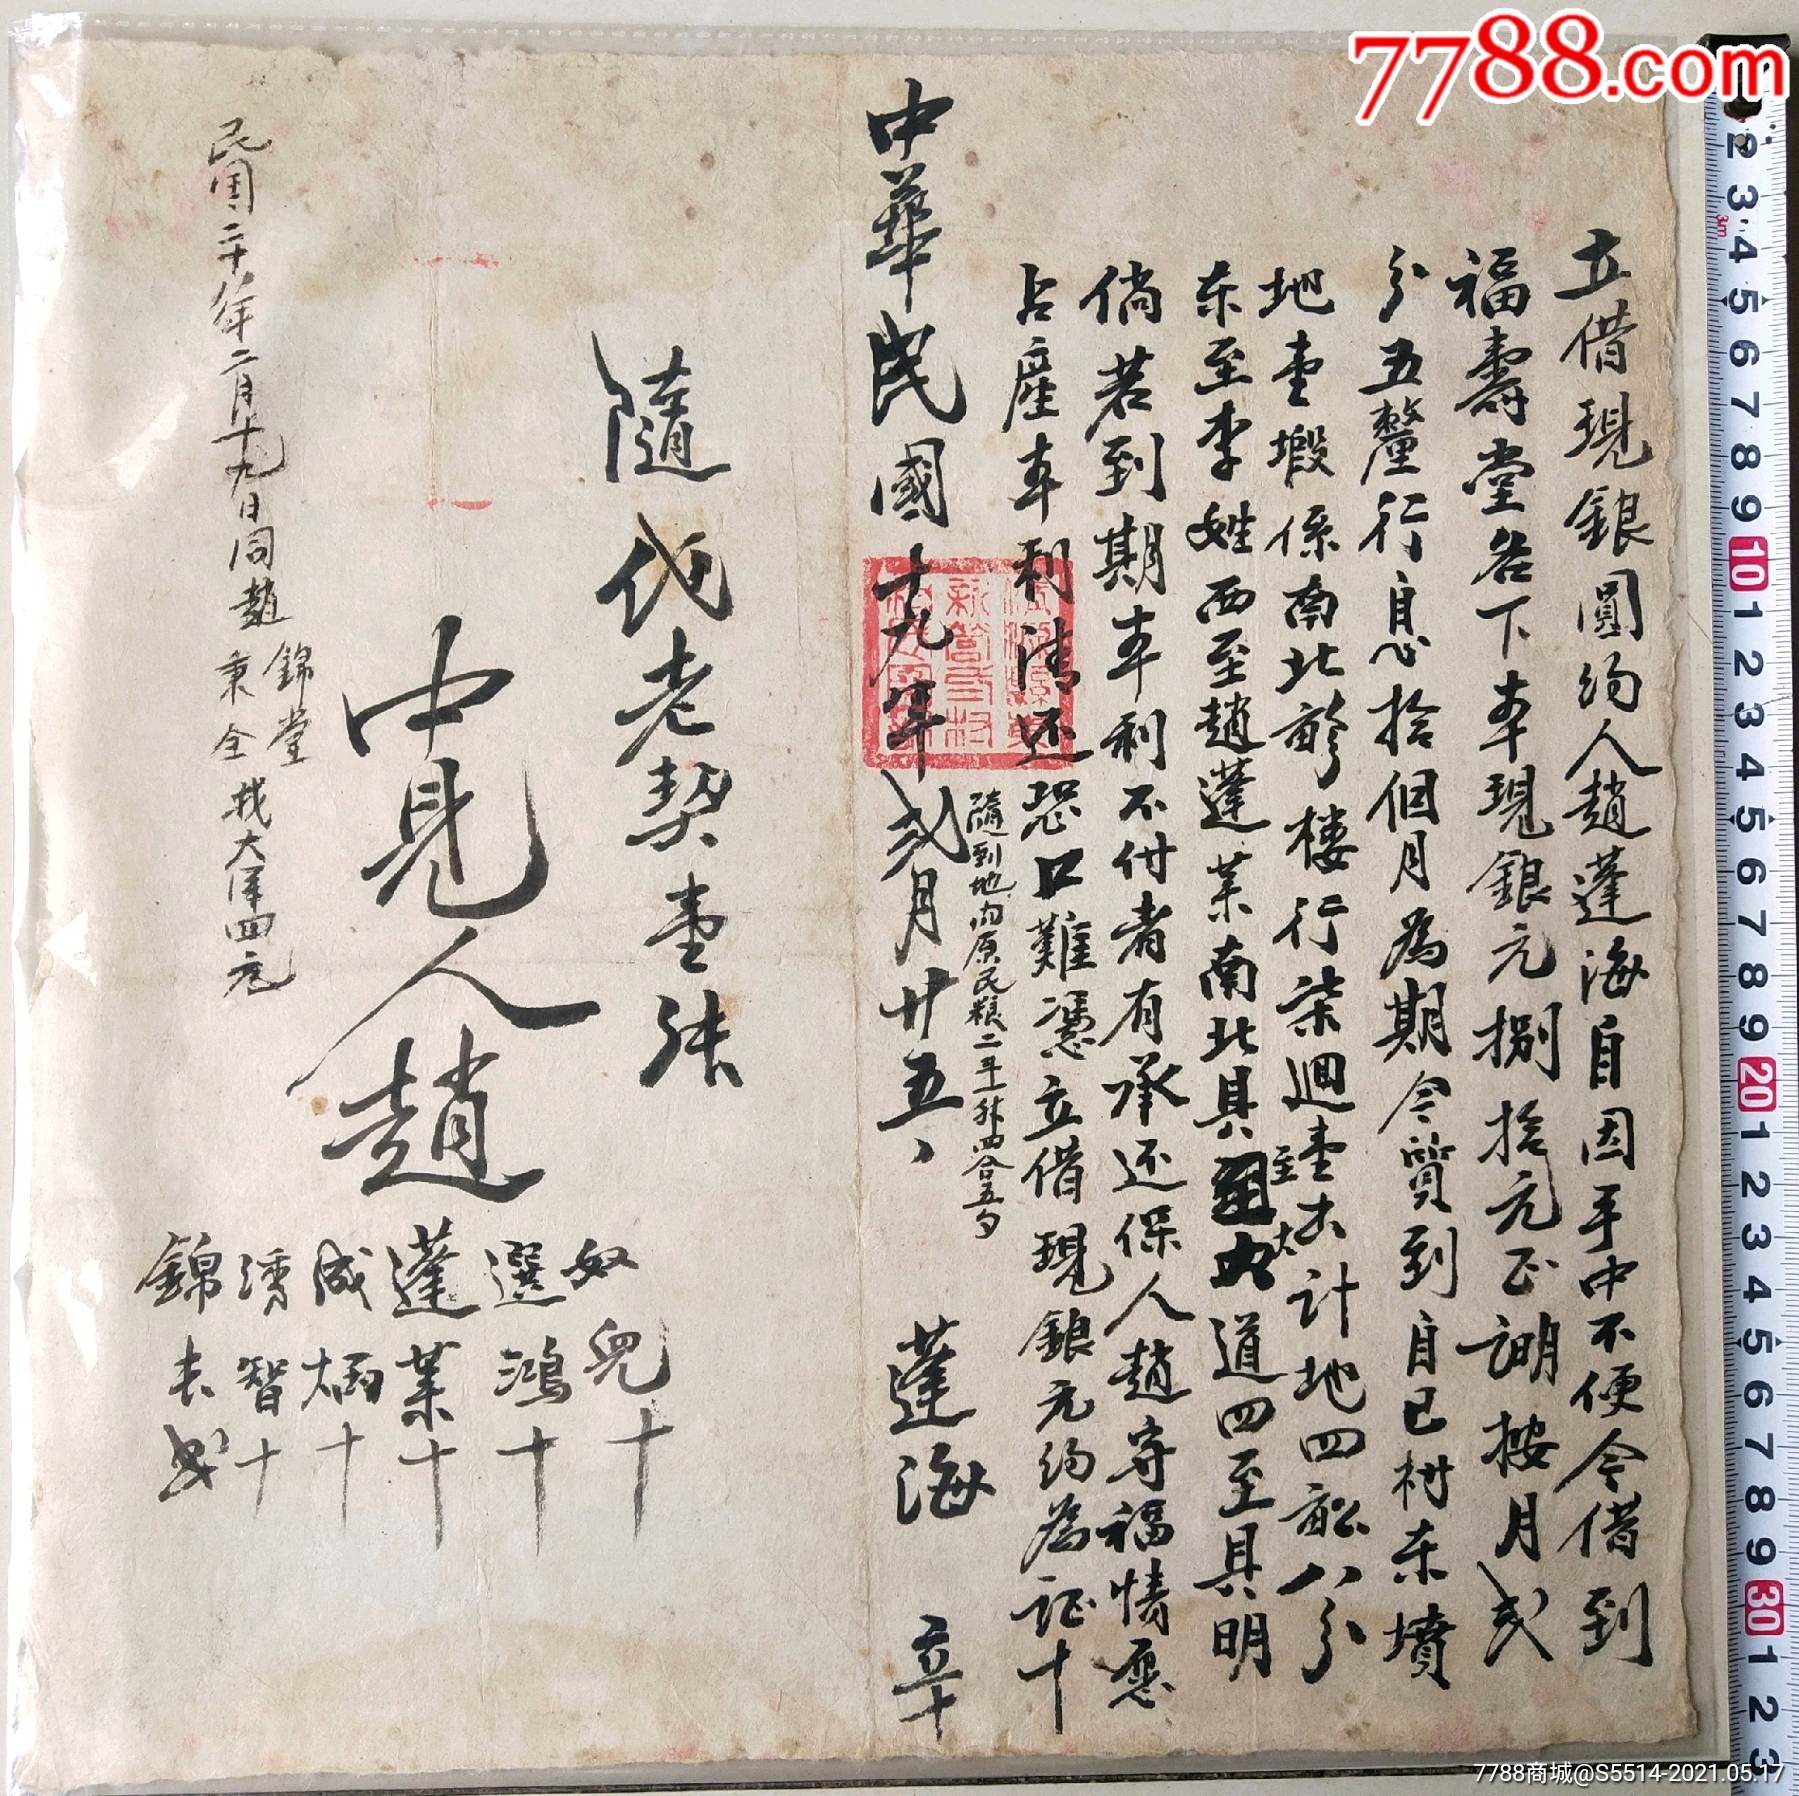 立借現銀圓約人趙蓬海自因手中不便今借到
福壽堂名下本現銀元捌拾元正言明按月弍
分五釐行息拾個月為期今質到自己村東墳
地壹塅係南北畛楼行柒迴壹古計地四畝八分
東至李姓西至趙蓬業南北具至大道四至具明
倘若到期本利不付者有承还保人趙寄福情愿
占産本利清还恐口難憑立借現銀元約為証十
隨到地内原民粮二年一升四合五勺
中華民國十九年弍月廿五、 蓬海 立十
隨代老契壹張
中見人趙
奴兒十
選鴻十
蓬業十
成炳十
清智十
錦
民國二十年二月十九日同趙錦堂秉全找大洋四元
7788.com
7788商城@S5514-2021.05.17